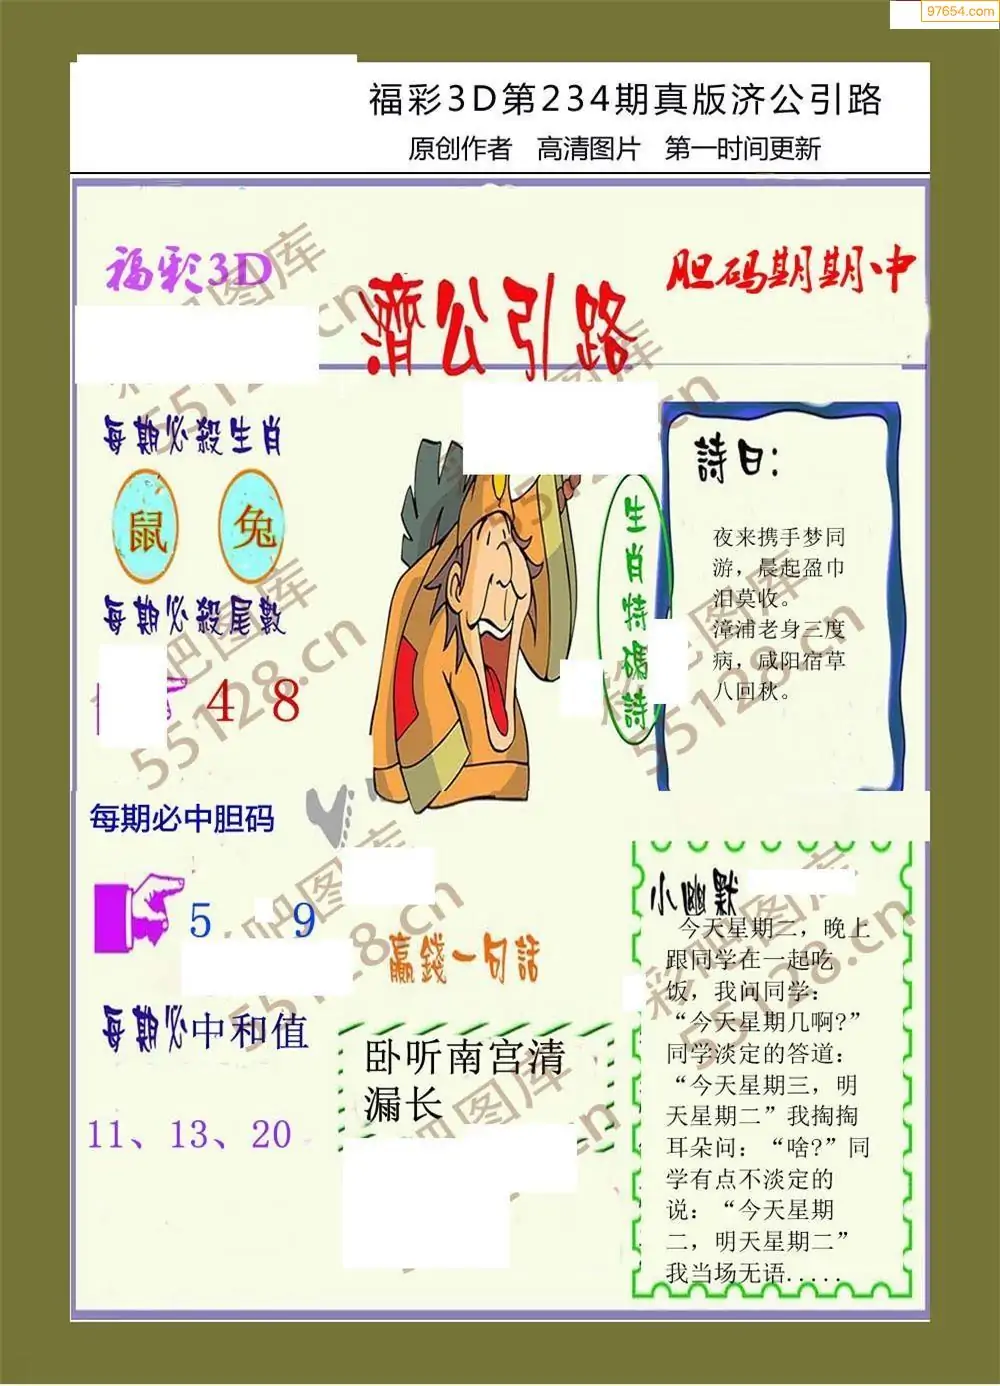 97654.com
福彩3D第234期真版济公引路
原创作者 高清图片 第一时间更新
福彩3D
濟公引路
胆码期期中
每期必殺生肖
鼠 兔
每期必殺尾數
4 8
生肖特碼詩
詩曰：
夜来携手梦同
游，晨起盈巾
泪莫收。
漳浦老身三度
病，咸阳宿草
八回秋。
每期必中胆码
5 9
每期必中和值
11、13、20
赢錢一句話
卧听南宫清
漏长
小幽默
今天星期二，晚上
跟同学在一起吃
饭，我问同学：
“今天星期几啊?”
同学淡定的答道：
“今天星期三，明
天星期二”我掏掏
耳朵问：“啥?”同
学有点不淡定的
说：“今天星期
二，明天星期二”
我当场无语.....
彩吧图库
55128.cn